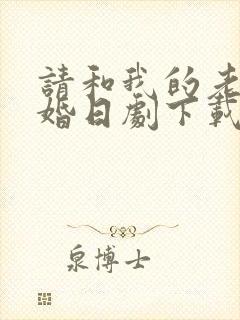 請和我的老
婚日劇下載
泉博士